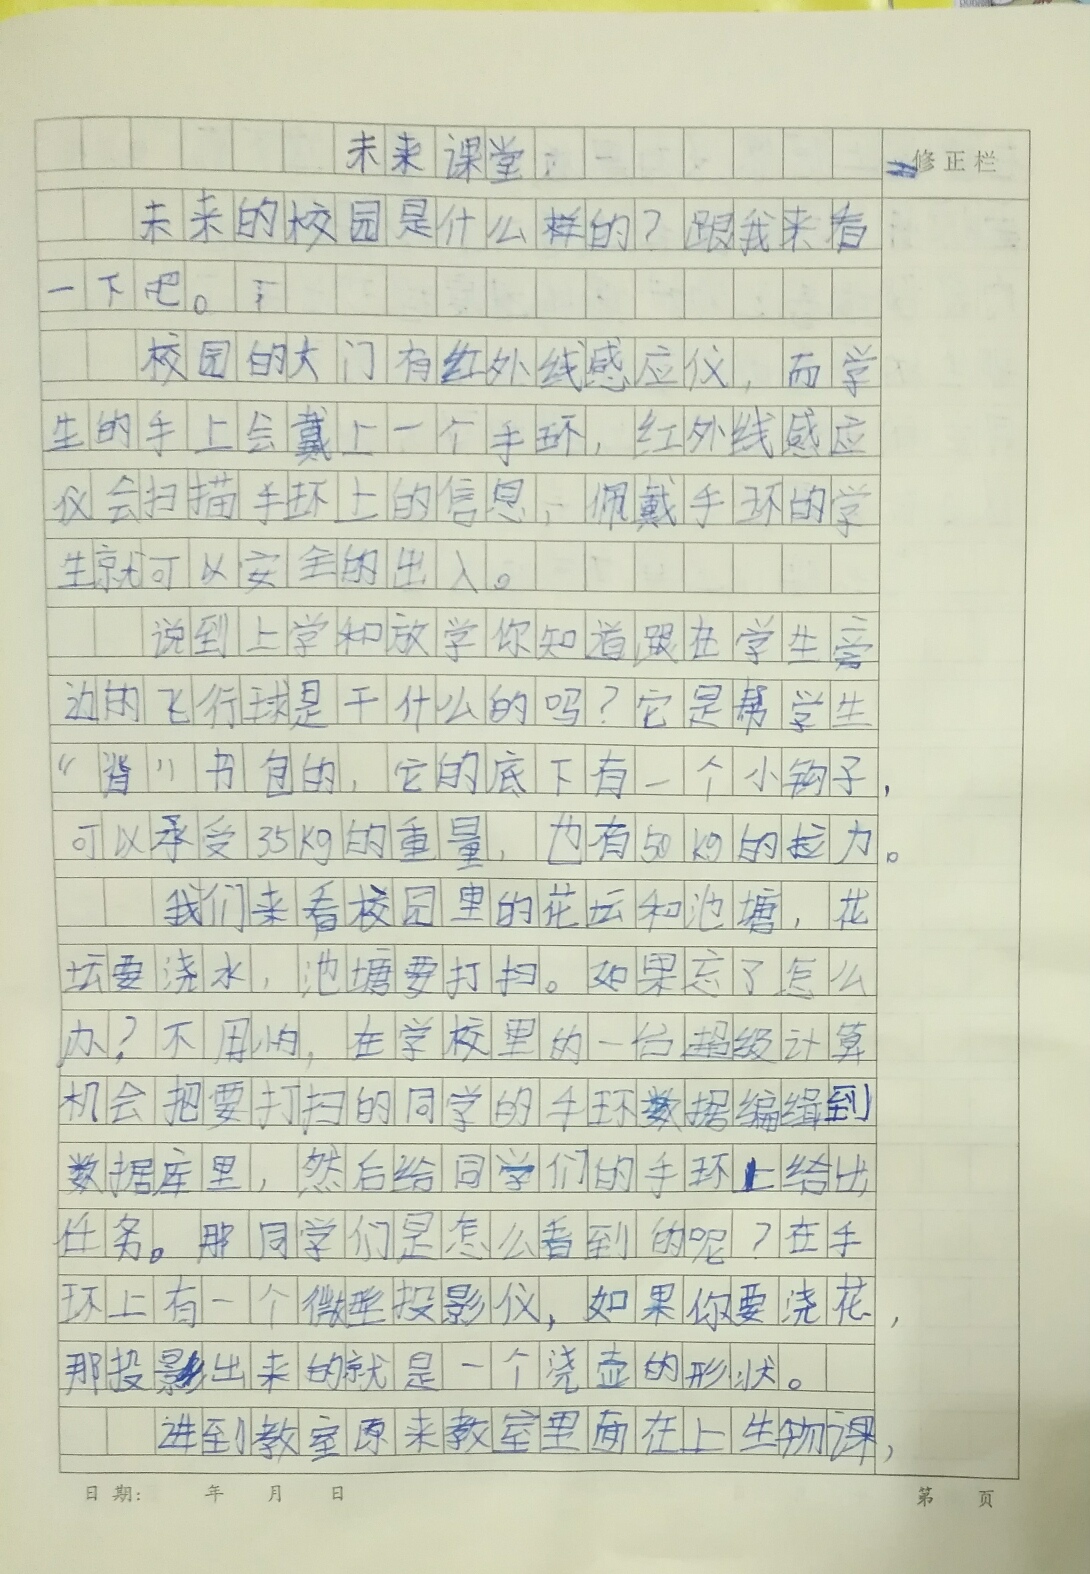 未来课堂
修正栏
未来的校园是什么样的？跟我来看
一下吧。
校园的大门有红外线感应仪，而学
生的手上会戴上一个手环，红外线感应
仪会扫描手环上的信息，佩戴手环的学
生就可以安全的出入。
说到上学和放学你知道跟在学生旁
边的飞行球是干什么的吗？它是帮学生
“背”书包的，它的底下有一个小钩子，
可以承受35kg的重量，也有50kg的拉力。
我们来看校园里的花坛和池塘，花
坛要浇水，池塘要打扫。如果忘了怎么
办？不用怕，在学校里的一台超级计算
机会把要打扫的同学的手环数据编缉到
数据库里，然后给同学们的手环上给出
任务。那同学们是怎么看到的呢？在手
环上有一个微型投影仪，如果你要浇花，
那投影出来的就是一个浇壶的形状。
进到教室原来教室里面在上生物课，
日期： 年 月 日
第 页